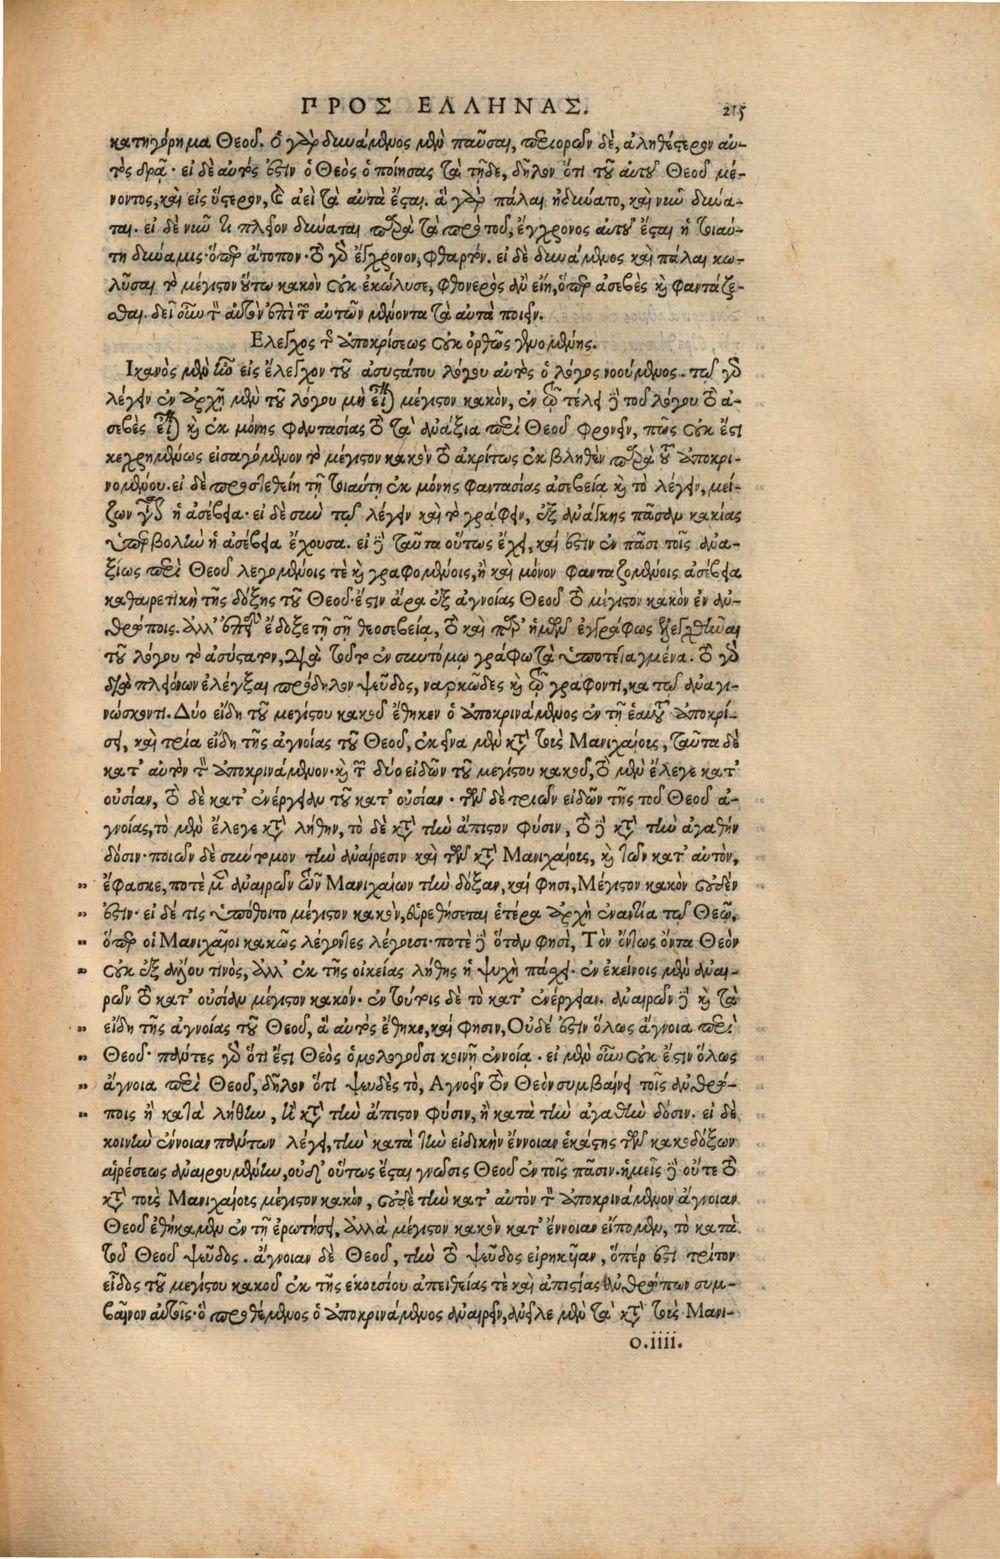 ΠΡΟΣ ΕΛΛΗΝΑΣ. 215
κατηγόρημα Θεοῦ. ὁ γὰρ δυνάμενος μὲν παῦσαι, περιορῶν δὲ, ἀληθέστερον αὐ-
τὸς δρᾷ· εἰ δὲ αὐτός ἐστιν ὁ Θεὸς ὁ ποιήσας τὰ τῇδε, δῆλον ὅτι τοῦ αὐτοῦ Θεοῦ μέ-
νοντος, καὶ εἰς ὕστερον, καὶ ἀεὶ τὰ αὐτὰ ἔσται. ἃ γὰρ πάλαι ἠδύνατο, καὶ νῦν δύνα-
ται. εἰ δὲ νῦν τι πλέον δύναται παρὰ τὰ πρὸ τοῦ, ἔγχρονος αὐτοῦ ἔσται ἡ τοιαύ-
τη δύναμις· ὅπερ ἄτοπον· τὸ γὰρ ἔγχρονον, φθαρτόν. εἰ δὲ δυνάμενος καὶ πάλαι κω-
λῦσαι τὸ μέγιστον οὕτω κακὸν οὐκ ἐκώλυσε, φθονερὸς ἂν εἴη, ὅπερ ἀσεβὲς καὶ φαντάζε-
σθαι. δεῖ οὖν τὸν αὐτὸν ἐπὶ τῶν αὐτῶν μένοντα τὰ αὐτὰ ποιεῖν.
Ελεγχος τῆς ἀποκρίσεως οὐκ ὀρθῶς γενομένης.
Ικανὸς μὲν ἦν εἰς ἔλεγχον τοῦ ἀσυστάτου λόγου αὐτὸς ὁ λόγος νοούμενος. τῷ γὰρ
λέγειν ἐν ἀρχῇ μὲν τοῦ λόγου μὴ εἶναι μέγιστον κακὸν, ἐν τῷ τέλει δὲ τοῦ λόγου τὸ ἀ-
σεβὲς εἶναι καὶ ἐκ μόνης φαντασίας τὸ τὰ ἀνάξια περὶ Θεοῦ φρονεῖν, πῶς οὐκ ἔστι
κεχρημένως εἰσαγόμενον τὸ μέγιστον κακὸν τὸ ἀκρίτως ἐκβληθὲν παρὰ τοῦ ἀποκρι-
νομένου. εἰ δὲ προστεθείη τῇ τοιαύτῃ ἐκ μόνης φαντασίας ἀσεβείᾳ καὶ τὸ λέγειν, μεί-
ζων γὰρ ἡ ἀσέβεια· εἰ δὲ σὺν τῷ λέγειν καὶ τὸ γράφειν, ἐξ ἀνάγκης πᾶσαν κακίας
ὑπερβολὴν ἡ ἀσέβεια ἔχουσα. εἰ δὲ ταῦτα οὕτως ἔχει, καὶ ἔστιν ἐν πᾶσι τοῖς ἀνα-
ξίως περὶ Θεοῦ λεγομένοις τὲ καὶ γραφομένοις, ἢ καὶ μόνον φανταζομένοις ἀσέβεια
καθαιρετικὴ τῆς δόξης τοῦ Θεοῦ· ἔστιν ἄρα ἐξ ἀγνοίας Θεοῦ τὸ μέγιστον κακὸν ἐν ἀν-
θρώποις. ἀλλ' ἐπειδὴ ἔδοξε τῇ σῇ θεοσεβείᾳ, τὸ καὶ παρ' ἡμῶν ἐγγράφως ἐλεγχθῆναι
τοῦ λόγου τὸ ἀσύστατον, διὰ τοῦτο ἐν συντόμῳ γράφω τὰ ὑποτεταγμένα. τὸ γὰρ
διὰ πλειόνων ἐλέγξαι πρόδηλον ψεῦδος, ναρκῶδες καὶ τῷ γράφοντι, καὶ τῷ ἀναγι-
νώσκοντι. Δύο εἴδη τοῦ μεγίστου κακοῦ ἔθηκεν ὁ ἀποκρινάμενος ἐν τῇ ἑαυτοῦ ἀποκρί-
σει, καὶ τρία εἴδη τῆς ἀγνοίας τοῦ Θεοῦ, ἐκεῖνα μὲν κατὰ τοὺς Μανιχαίους, ταῦτα δὲ
κατ' αὐτὸν τὸν ἀποκρινάμενον· καὶ τῶν δύο εἰδῶν τοῦ μεγίστου κακοῦ, τὸ μὲν ἔλεγε κατ'
οὐσίαν, τὸ δὲ κατ' ἐνέργειαν τοῦ κατ' οὐσίαν· τῶν δὲ τριῶν εἰδῶν τῆς τοῦ Θεοῦ ἀ-
γνοίας, τὸ μὲν ἔλεγε κατὰ λήθην, τὸ δὲ κατὰ τὴν ἄπιστον φύσιν, τὸ δὲ κατὰ τὴν ἀγαθὴν
δόσιν· ποιῶν δὲ σύντομον τὴν ἀναίρεσιν καὶ τῶν κατὰ Μανιχαίους, καὶ τῶν κατ' αὐτὸν,
ἔφασκε, ποτὲ μὲν ἀναιρῶν τῶν Μανιχαίων τὴν δόξαν, καί φησι, Μέγιστον κακὸν οὐδέν
ἐστιν· εἰ δέ τις ὑπόθοιτο μέγιστον κακὸν, εὑρεθήσεται ἑτέρα ἀρχὴ ἐναντία τῷ Θεῷ,
ὅπερ οἱ Μανιχαῖοι κακῶς λέγοντες λέγουσι· ποτὲ δὲ ὅταν φησὶ, Τὸν ὄντως ὄντα Θεὸν
οὐκ ἐξ ἄλλου τινὸς, ἀλλ' ἐκ τῆς οἰκείας λήθης ἡ ψυχὴ πάσχει· ἐν ἐκείνοις μὲν ἀναι-
ρῶν τὸ κατ' οὐσίαν μέγιστον κακόν· ἐν τούτοις δὲ τὸ κατ' ἐνέργειαν. ἀναιρῶν δὲ καὶ τὰ
εἴδη τῆς ἀγνοίας τοῦ Θεοῦ, ἃ αὐτὸς ἔθηκε, καί φησιν, Οὐδέ ἐστιν ὅλως ἄγνοια περὶ
Θεοῦ· πάντες γὰρ ὅτι ἔστι Θεὸς ὁμολογοῦσι κοινῇ ἐννοίᾳ· εἰ μὲν οὖν οὐκ ἔστιν ὅλως
ἄγνοια περὶ Θεοῦ, δῆλον ὅτι ψευδὲς τὸ, Αγνοεῖν τὸν Θεὸν συμβαίνει τοῖς ἀνθρώ-
ποις ἢ κατὰ λήθην, ἢ κατὰ τὴν ἄπιστον φύσιν, ἢ κατὰ τὴν ἀγαθὴν δόσιν. εἰ δὲ
κοινὴν ἔννοιαν πάντων λέγει, τὴν κατὰ τὴν εἰδικὴν ἔννοιαν ἑκάστης τῶν κακοδόξων
αἱρέσεως ἀναιρουμένην, οὐδ' οὕτως ἔσται γνῶσις Θεοῦ ἐν τοῖς πᾶσιν. ἡμεῖς δὲ οὔτε τὸ
κατὰ τοὺς Μανιχαίους μέγιστον κακὸν, οὐδὲ τὴν κατ' αὐτὸν τὸν ἀποκρινάμενον ἄγνοιαν
Θεοῦ ἐθήκαμεν ἐν τῇ ἐρωτήσει, ἀλλὰ μέγιστον κακὸν κατ' ἔννοιαν εἴπομεν, τὸ κατὰ
τοῦ Θεοῦ ψεῦδος. ἄγνοιαν δὲ Θεοῦ, τὴν τὸ ψεῦδος εἰρηκυῖαν, ὅπέρ ἐστι τρίτον
εἶδος τοῦ μεγίστου κακοῦ ἐκ τῆς ἑκουσίου ἀπειθείας τὲ καὶ ἀπιστίας ἀνθρώπων συμ-
βαῖνον αὐτοῖς· ὃ προθέμενος ὁ ἀποκρινάμενος ἀναιρεῖν, ἀνεῖλε μὲν τὰ κατὰ τοὺς Μανι-
ο.iiii.